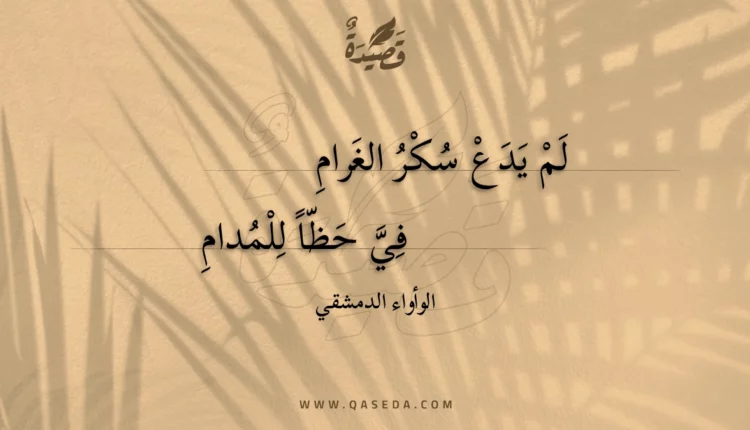 قَصِيدَةٌ
لَمْ يَدَعْ سُكْرُ الغَرامِ
فِيَّ حَظّاً لِلْمُدامِ
الوأواء الدمشقي
WWW.QASEDA.COM